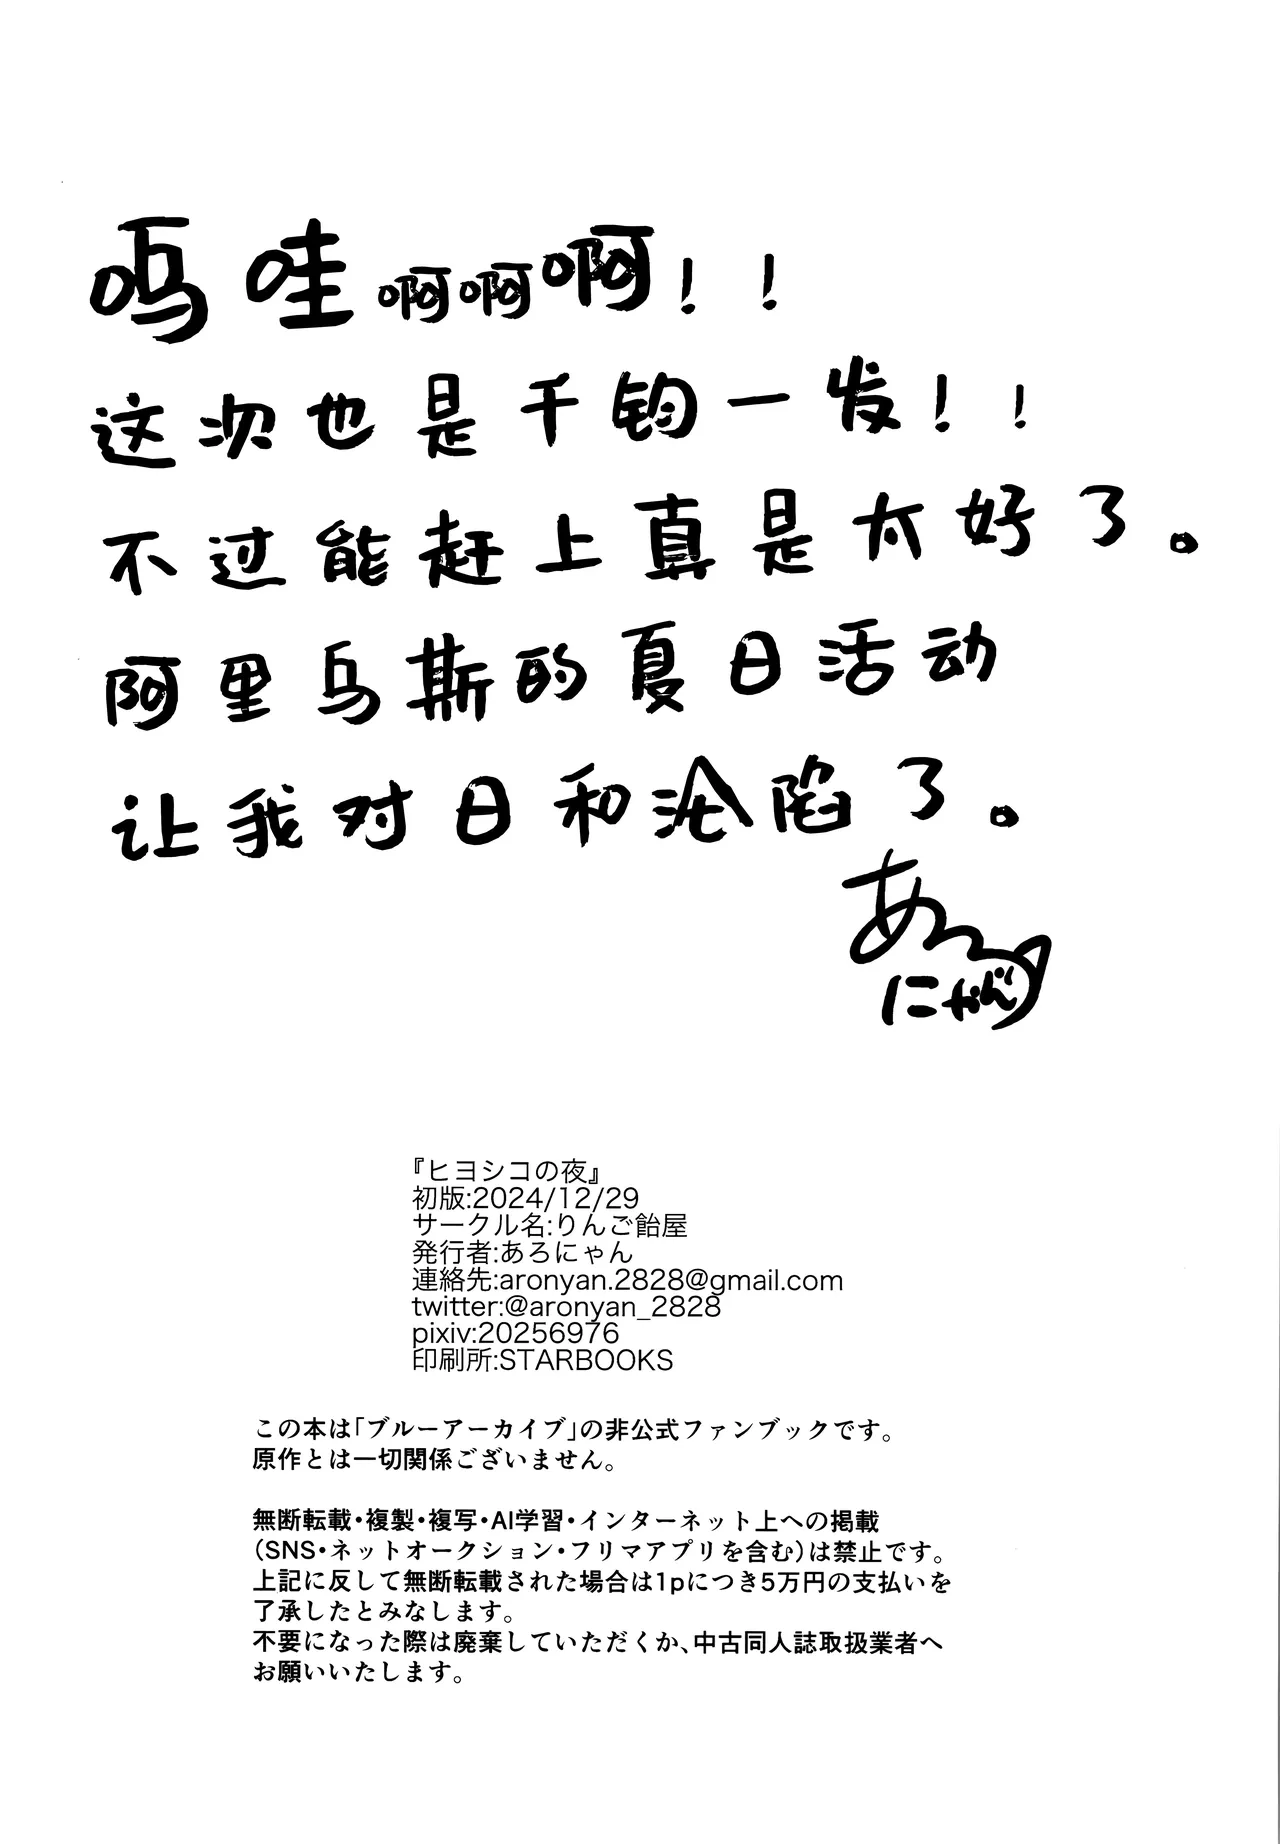 呜哇啊啊啊！！
这次也是千钧一发！！
不过能赶上真是太好了。
阿里乌斯的夏日活动
让我对日和沦陷了。
あろ
にゃん
『ヒヨシコの夜』
初版:2024/12/29
サークル名:りんご飴屋
発行者:あろにゃん
連絡先:aronyan.2828@gmail.com
twitter:@aronyan_2828
pixiv:20256976
印刷所:STARBOOKS
この本は｢ブルーアーカイブ｣の非公式ファンブックです。
原作とは一切関係ございません。
無断転載・複製・複写・AI学習・インターネット上への掲載
(SNS・ネットオークション・フリマアプリを含む)は禁止です。
上記に反して無断転載された場合は1pにつき5万円の支払いを
了承したとみなします。
不要になった際は廃棄していただくか、中古同人誌取扱業者へ
お願いいたします。